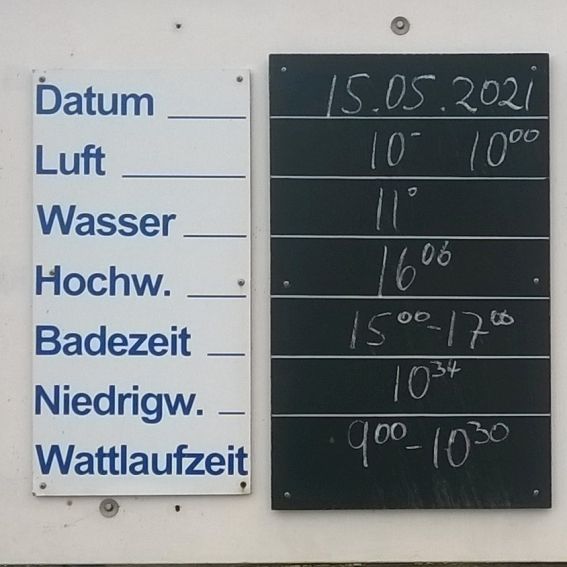 Datum 15.05.2021
Luft 10° 10⁰⁰
Wasser 11°
Hochw. 16⁰⁶
Badezeit 15⁰⁰-17⁰⁰
Niedrigw. 10³⁴
Wattlaufzeit 9⁰⁰-10³⁰